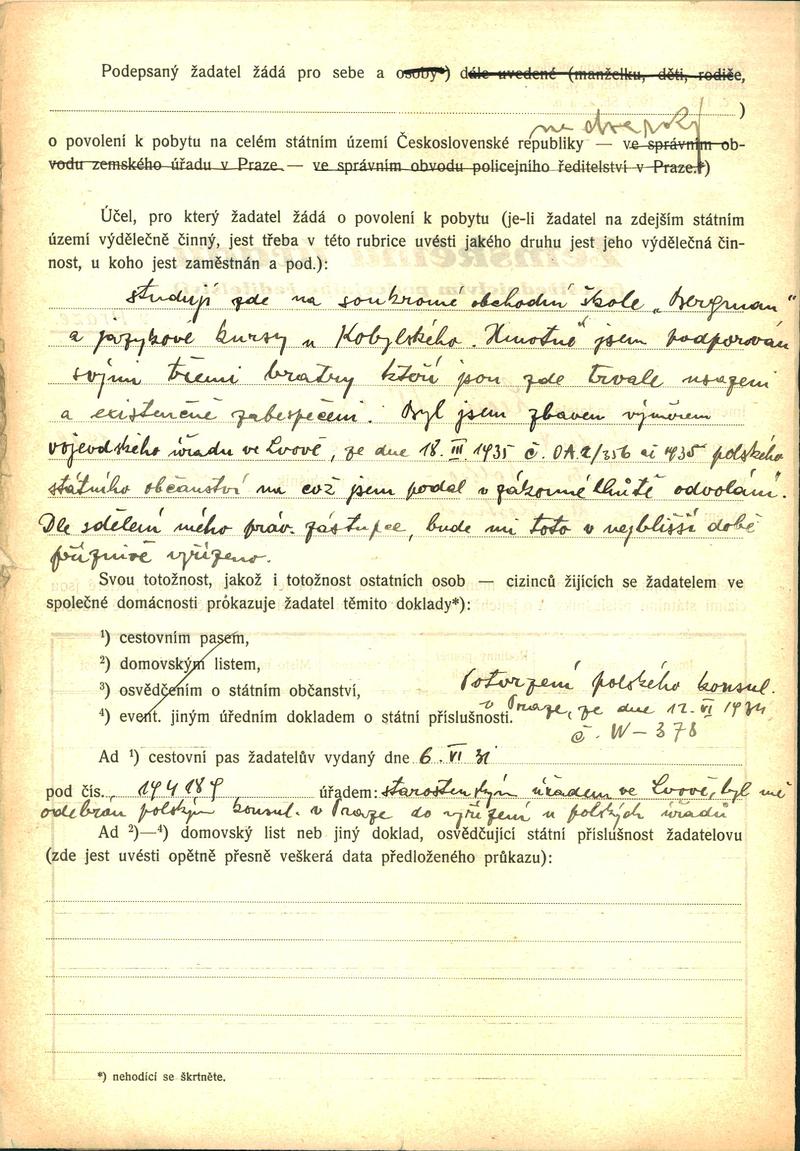 Podepsaný žadatel žádá pro sebe a osoby*) dále uvedené (manželku, děti, rodiče,
)
na dva roky
o povolení k pobytu na celém státním území Československé republiky — ve správním ob-
vodu zemského úřadu v Praze — ve správním obvodu policejního ředitelství v Praze.*)
Účel, pro který žadatel žádá o povolení k pobytu (je-li žadatel na zdejším státním
území výdělečně činný, jest třeba v této rubrice uvésti jakého druhu jest jeho výdělečná čin-
nost, u koho jest zaměstnán a pod.):
studuji zde na soukromé obchodní škole „Bergman"
a jazykové kursy u Kobylského. Hmotně jsem podporován
svými třemi bratry kteří jsou zde trvale usazeni
a existenčně zabezpečeni. Byl jsem zbaven výměrem
vojevdského úřadu ve Lvově, ze dne 18. III. 1935 č. OA.2/356 ai 1935 polského
státního občanství na což jsem podal v zákonné lhůtě odvolání.
Dle sdělení mého práv. zástupce, bude mi toto v nejbližší době
příznivě vyřízeno.
Svou totožnost, jakož i totožnost ostatních osob — cizinců žijících se žadatelem ve
společné domácnosti prókazuje žadatel těmito doklady*):
¹) cestovním pasem,
²) domovským listem,
³) osvědčením o státním občanství,
Potvrzení polského konsul.
⁴) event. jiným úředním dokladem o státní příslušnosti.
v Praze, ze dne 12. VI 1934
č. W – 378
Ad ¹) cestovní pas žadatelův vydaný dne 6. VI 31
pod čís. 194189 úřadem: starostenským úřadem ve Lvově, byl mě
odebrán polským konsul. v Praze do vyřízení u polských úřadů
Ad ²)—⁴) domovský list neb jiný doklad, osvědčující státní příslušnost žadatelovu
(zde jest uvésti opětně přesně veškerá data předloženého průkazu):
*) nehodící se škrtněte.